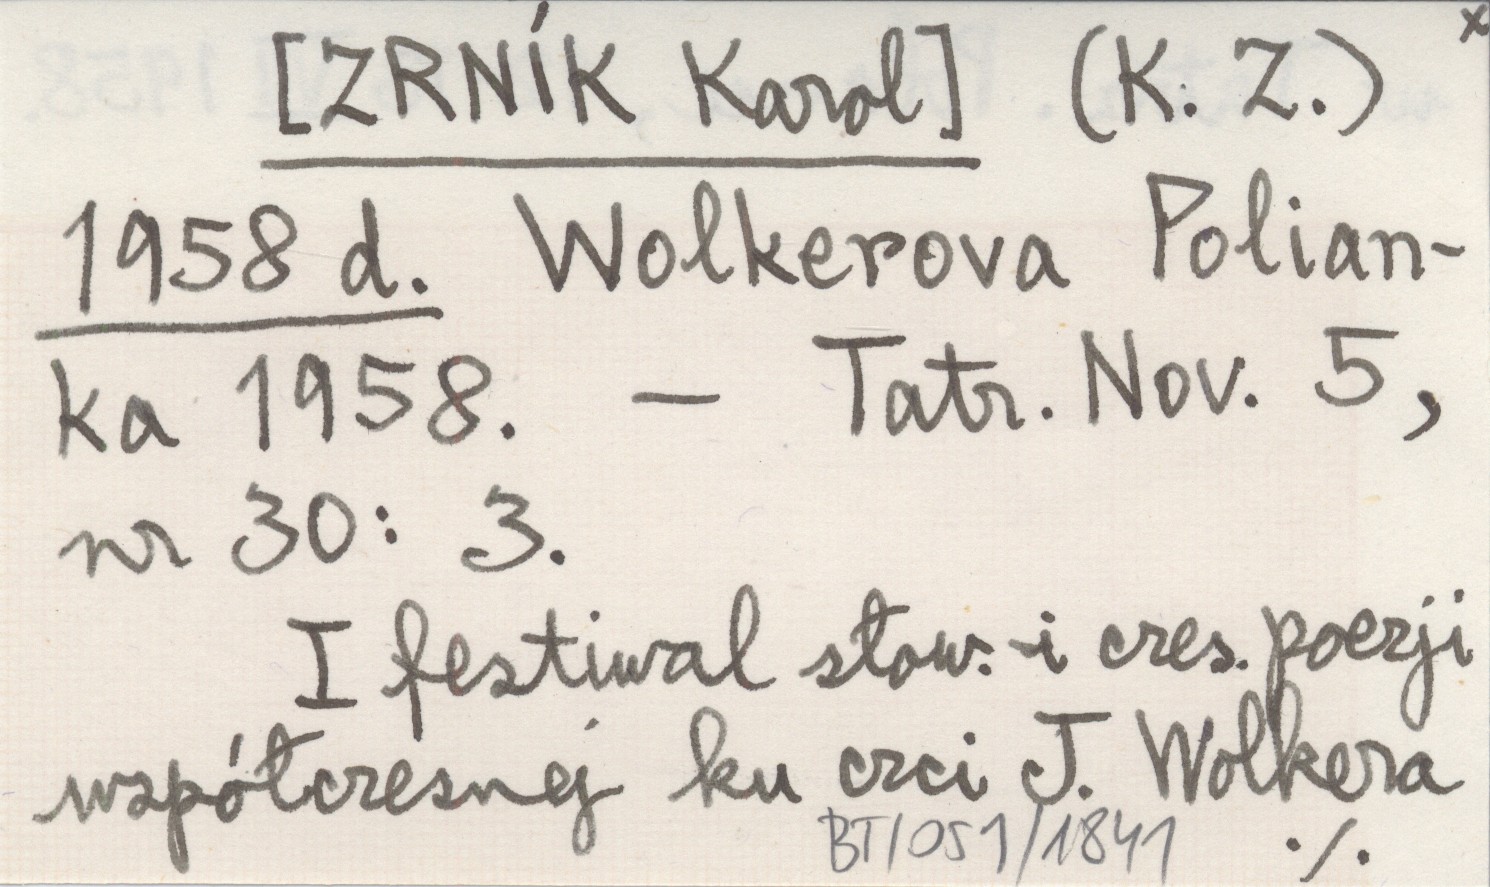 [ZRNÍK Karol] (K. Z.) x
1958 d. Wolkerova Polian-
ka 1958. — Tatr. Nov. 5,
nr 30: 3.
I festiwal słow.-i czes. poezji
współczesnej ku czci J. Wolkera
BT/051/1841 ./.